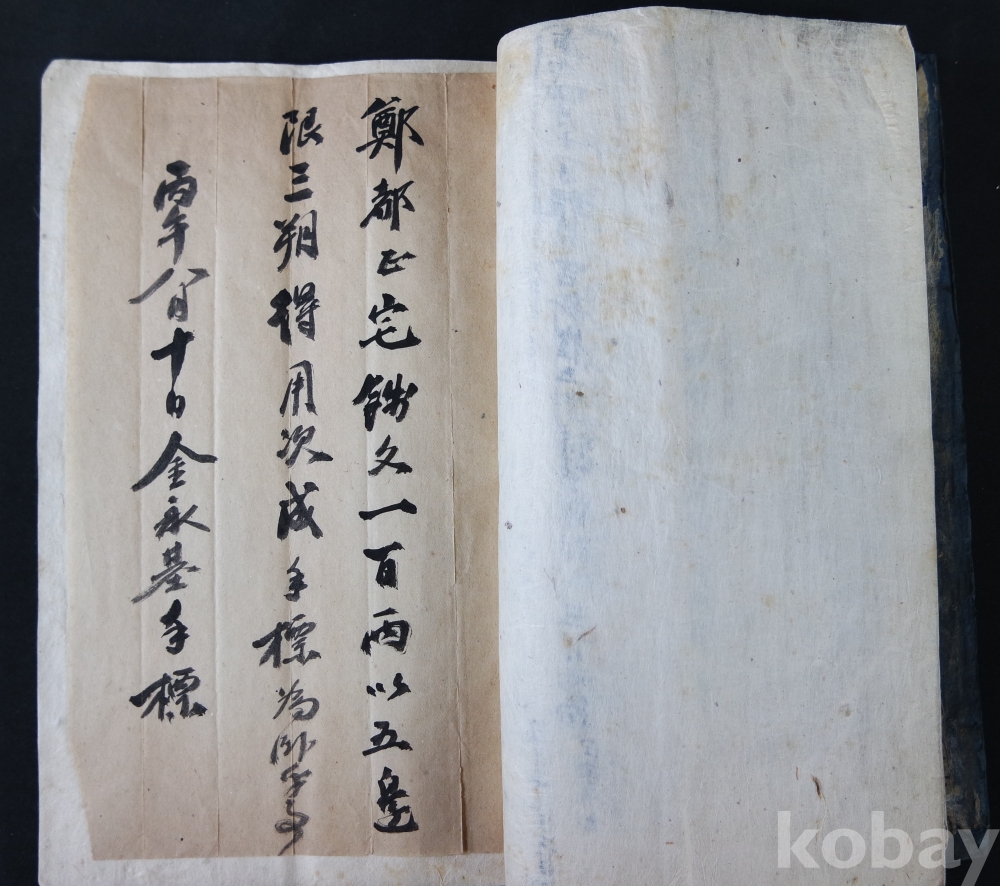 鄭都正宅錢文一百兩以五邊
限三朔得用次成手標爲臥乎事
丙午八月十日金永基手標
kobay